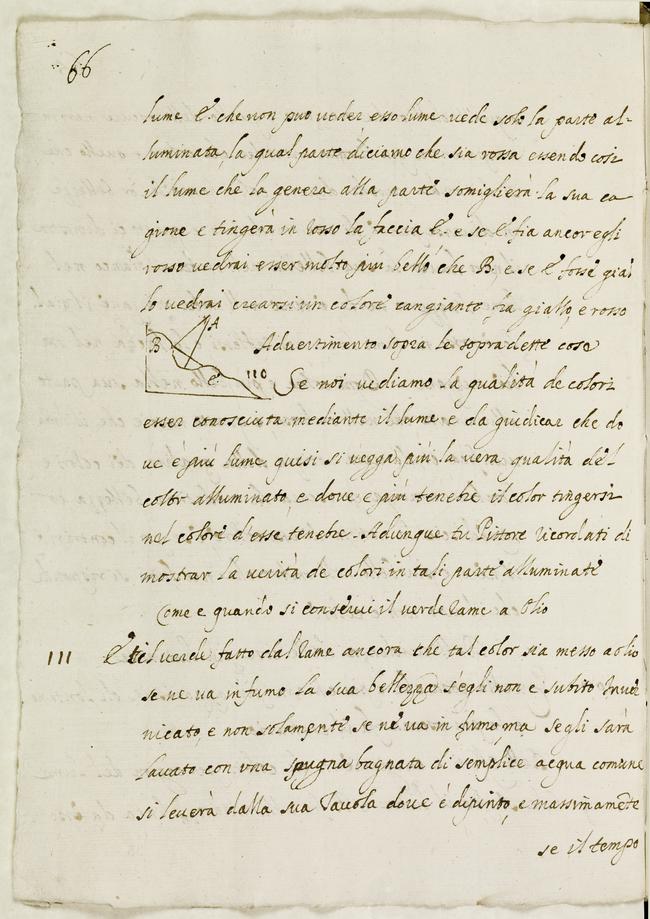 66
lume E. che non puo veder esso lume vede solo la parte al-
luminata, la qual parte diciamo che sia rossa essendo cosi
il lume che la genera alla parte somiglierà la sua ca
gione e tingerà in rosso la faccia E. e se E. fia ancor egli
rosso vedrai esser molto più bello che B, e se E fosse gial
lo vedrai crearsi un colore cangiante fra giallo, e rosso
A
B
Advertimento sopra le sopradette cose
e
110 Se noi vediamo la qualità de colori
esser conosciuta mediante il lume e da giudicar che do
ve é più lume quisi si vegga più la vera qualità del
color alluminato, e dove e più tenebre il color tingersi
nel colore d'esse tenebre. Adunque tu Pittore ricordati di
mostrar la verità de colori in tali parte alluminate
Come e quando si conservi il verderame a olio
111 E il verde fatto dal rame ancora che tal color sia messo a olio
se ne va in fumo la sua bellezza s'egli non e subito inver
nicato, e non solamente se ne va in fumo, ma se gli sarà
lavato con una spugna bagnata di semplice acqua comune
si leverà dalla sua tavola dove é dipinto, e massimamẽte
se il tempo